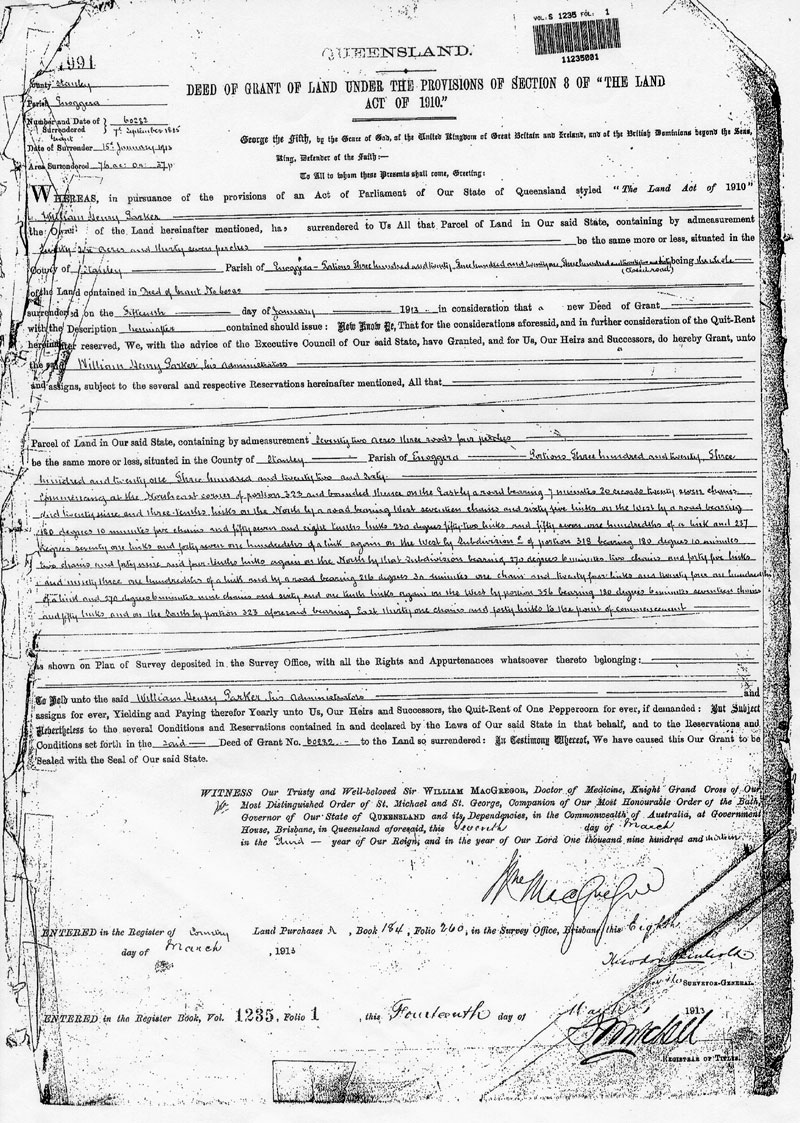 VOL: S 1235 FOL: 1
11235001
991
QUEENSLAND.
DEED OF GRANT OF LAND UNDER THE PROVISIONS OF SECTION 8 OF "THE LAND
ACT OF 1910."
County Stanley
Parish Enoggera
Number and Date of Surrendered Grant 60282 7th September 1885
Date of Surrender 15th January 1913
Area Surrendered 76 ac: 0r: 37p
George the Fifth, by the Grace of God, of the United Kingdom of Great Britain and Ireland, and of the British Dominions beyond the Seas,
King, Defender of the Faith:—
To All to whom these Presents shall come, Greeting:
WHEREAS, in pursuance of the provisions of an Act of Parliament of Our State of Queensland styled "The Land Act of 1910"
William Henry Parker
the Owner of the Land hereinafter mentioned, has surrendered to Us All that Parcel of Land in Our said State, containing by admeasurement
Seventy six acres and thirty seven perches be the same more or less, situated in the
County of Stanley Parish of Enoggera – Portions Three hundred and twenty, Three hundred and twenty one, Three hundred and twenty two and sixty (closed road) being the whole
of the Land contained in Deed of Grant No 60282
surrendered on the Fifteenth day of January 1913 in consideration that a new Deed of Grant
with the Description hereinafter contained should issue: Now Know Ye, That for the considerations aforesaid, and in further consideration of the Quit-Rent
hereinafter reserved, We, with the advice of the Executive Council of Our said State, have Granted, and for Us, Our Heirs and Successors, do hereby Grant, unto
the said William Henry Parker, his Administrators
and assigns, subject to the several and respective Reservations hereinafter mentioned, All that
Parcel of Land in Our said State, containing by admeasurement Seventy two acres three roods four perches
be the same more or less, situated in the County of Stanley Parish of Enoggera Portions Three hundred and twenty, Three
hundred and twenty one Three hundred and twenty two and sixty.
Commencing at the North east corner of portion 323 and bounded thence on the East by a road bearing 7 minutes 20 seconds twenty seven chains
and twenty nine and three tenths links on the North by a road bearing West seventeen chains and sixty five links on the West by a road bearing
180 degrees 10 minutes five chains and fifty seven and eight tenths links 230 degrees fifty two links and fifty seven one hundredths of a link and 237
degrees seventy one links and forty seven one hundredths of a link again on the West by Subdivision 2 of portion 318 bearing 180 degrees 10 minutes
two chains and forty nine and four tenths links again on the North by that Subdivision bearing 270 degrees 6 minutes two chains and forty five links
and ninety three one hundredths of a link and by a road bearing 216 degrees 30 minutes one chain and twenty four links and twenty four one hundredths
of a link and 270 degrees 6 minutes nine chains and sixty and one tenth links again on the West by portion 356 bearing 180 degrees 6 minutes seventeen chains
and fifty links and on the South by portion 323 aforesaid bearing East thirty one chains and forty links to the point of commencement
as shown on Plan of Survey deposited in the Survey Office, with all the Rights and Appurtenances whatsoever thereto belonging:
To Hold unto the said William Henry Parker, his Administrators and
assigns for ever, Yielding and Paying therefor Yearly unto Us, Our Heirs and Successors, the Quit-Rent of One Peppercorn for ever, if demanded: But Subject
Nevertheless to the several Conditions and Reservations contained in and declared by the Laws of Our said State in that behalf, and to the Reservations and
Conditions set forth in the said Deed of Grant No. 60282 to the Land so surrendered: In Testimony Whereof, We have caused this Our Grant to be
Sealed with the Seal of Our said State.
WITNESS Our Trusty and Well-beloved Sir WILLIAM MACGREGOR, Doctor of Medicine, Knight Grand Cross of Our
Most Distinguished Order of St. Michael and St. George, Companion of Our Most Honourable Order of the Bath,
Governor of Our State of QUEENSLAND and its Dependencies, in the Commonwealth of Australia, at Government
House, Brisbane, in Queensland aforesaid, this Seventh day of March
in the Third year of Our Reign, and in the year of Our Lord One thousand nine hundred and thirteen
Wm MacGregor
ENTERED in the Register of Country Land Purchases A, Book 184, Folio 260, in the Survey Office, Brisbane, this Eighth
day of March, 1913
for the SURVEYOR-GENERAL.
ENTERED in the Register Book, Vol. 1235, Folio 1, this Fourteenth day of March 1913
Mitchell
REGISTRAR OF TITLES.